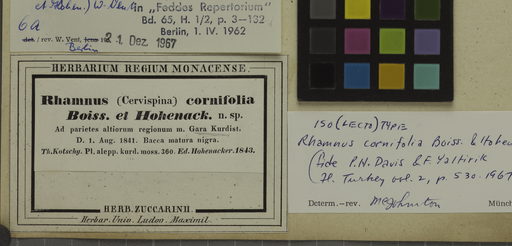 "Feddes Repertorium"
Bd. 65, H. 1/2, p. 3—132
Berlin, 1. IV. 1962
6a
det. / rev. W. Vent,
21. Dez. 1967
Berlin
HERBARIUM REGIUM MONACENSE.
Rhamnus (Cervispina) cornifolia
Boiss. et Hohenack. n. sp.
Ad parietes altiorum regionum m. Gara Kurdist.
D. 1. Aug. 1841. Bacca matura nigra.
Th. Kotschy. Pl. alepp. kurd. moss. 360. Ed. Hohenacker. 1843.
HERB. ZUCCARINII
Herbar. Univ. Ludov. Maximil.
ISO(LECTO)TYPE
Rhamnus cornifolia Boiss. & Hohen
(fide P.H. Davis & F. Yaltirik
Fl. Turkey vol. 2, p. 530. 1967
Determ.—rev. Johnston
Münc